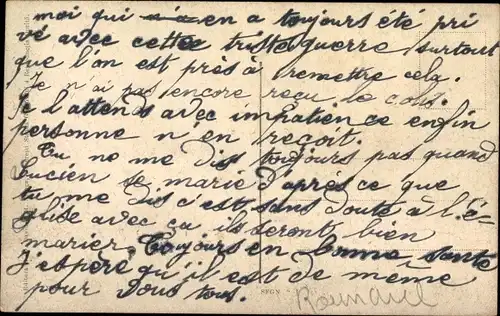 moi qui n'en a toujours été pri
vé avec cette triste guerre surtout
que l'on est près à remettre cela.
Je n'ai pas encore reçu le colis.
Je l'attends avec impatience enfin
personne n en reçoit.
Tu ne me dis toujours pas quand
Lucien se marie d'après ce que
tu me dis c'est sans doute à l'é-
glise avec ça ils seront bien
marier. Toujours en bonne santé
J'espère qu'il est de même
pour vous tous.